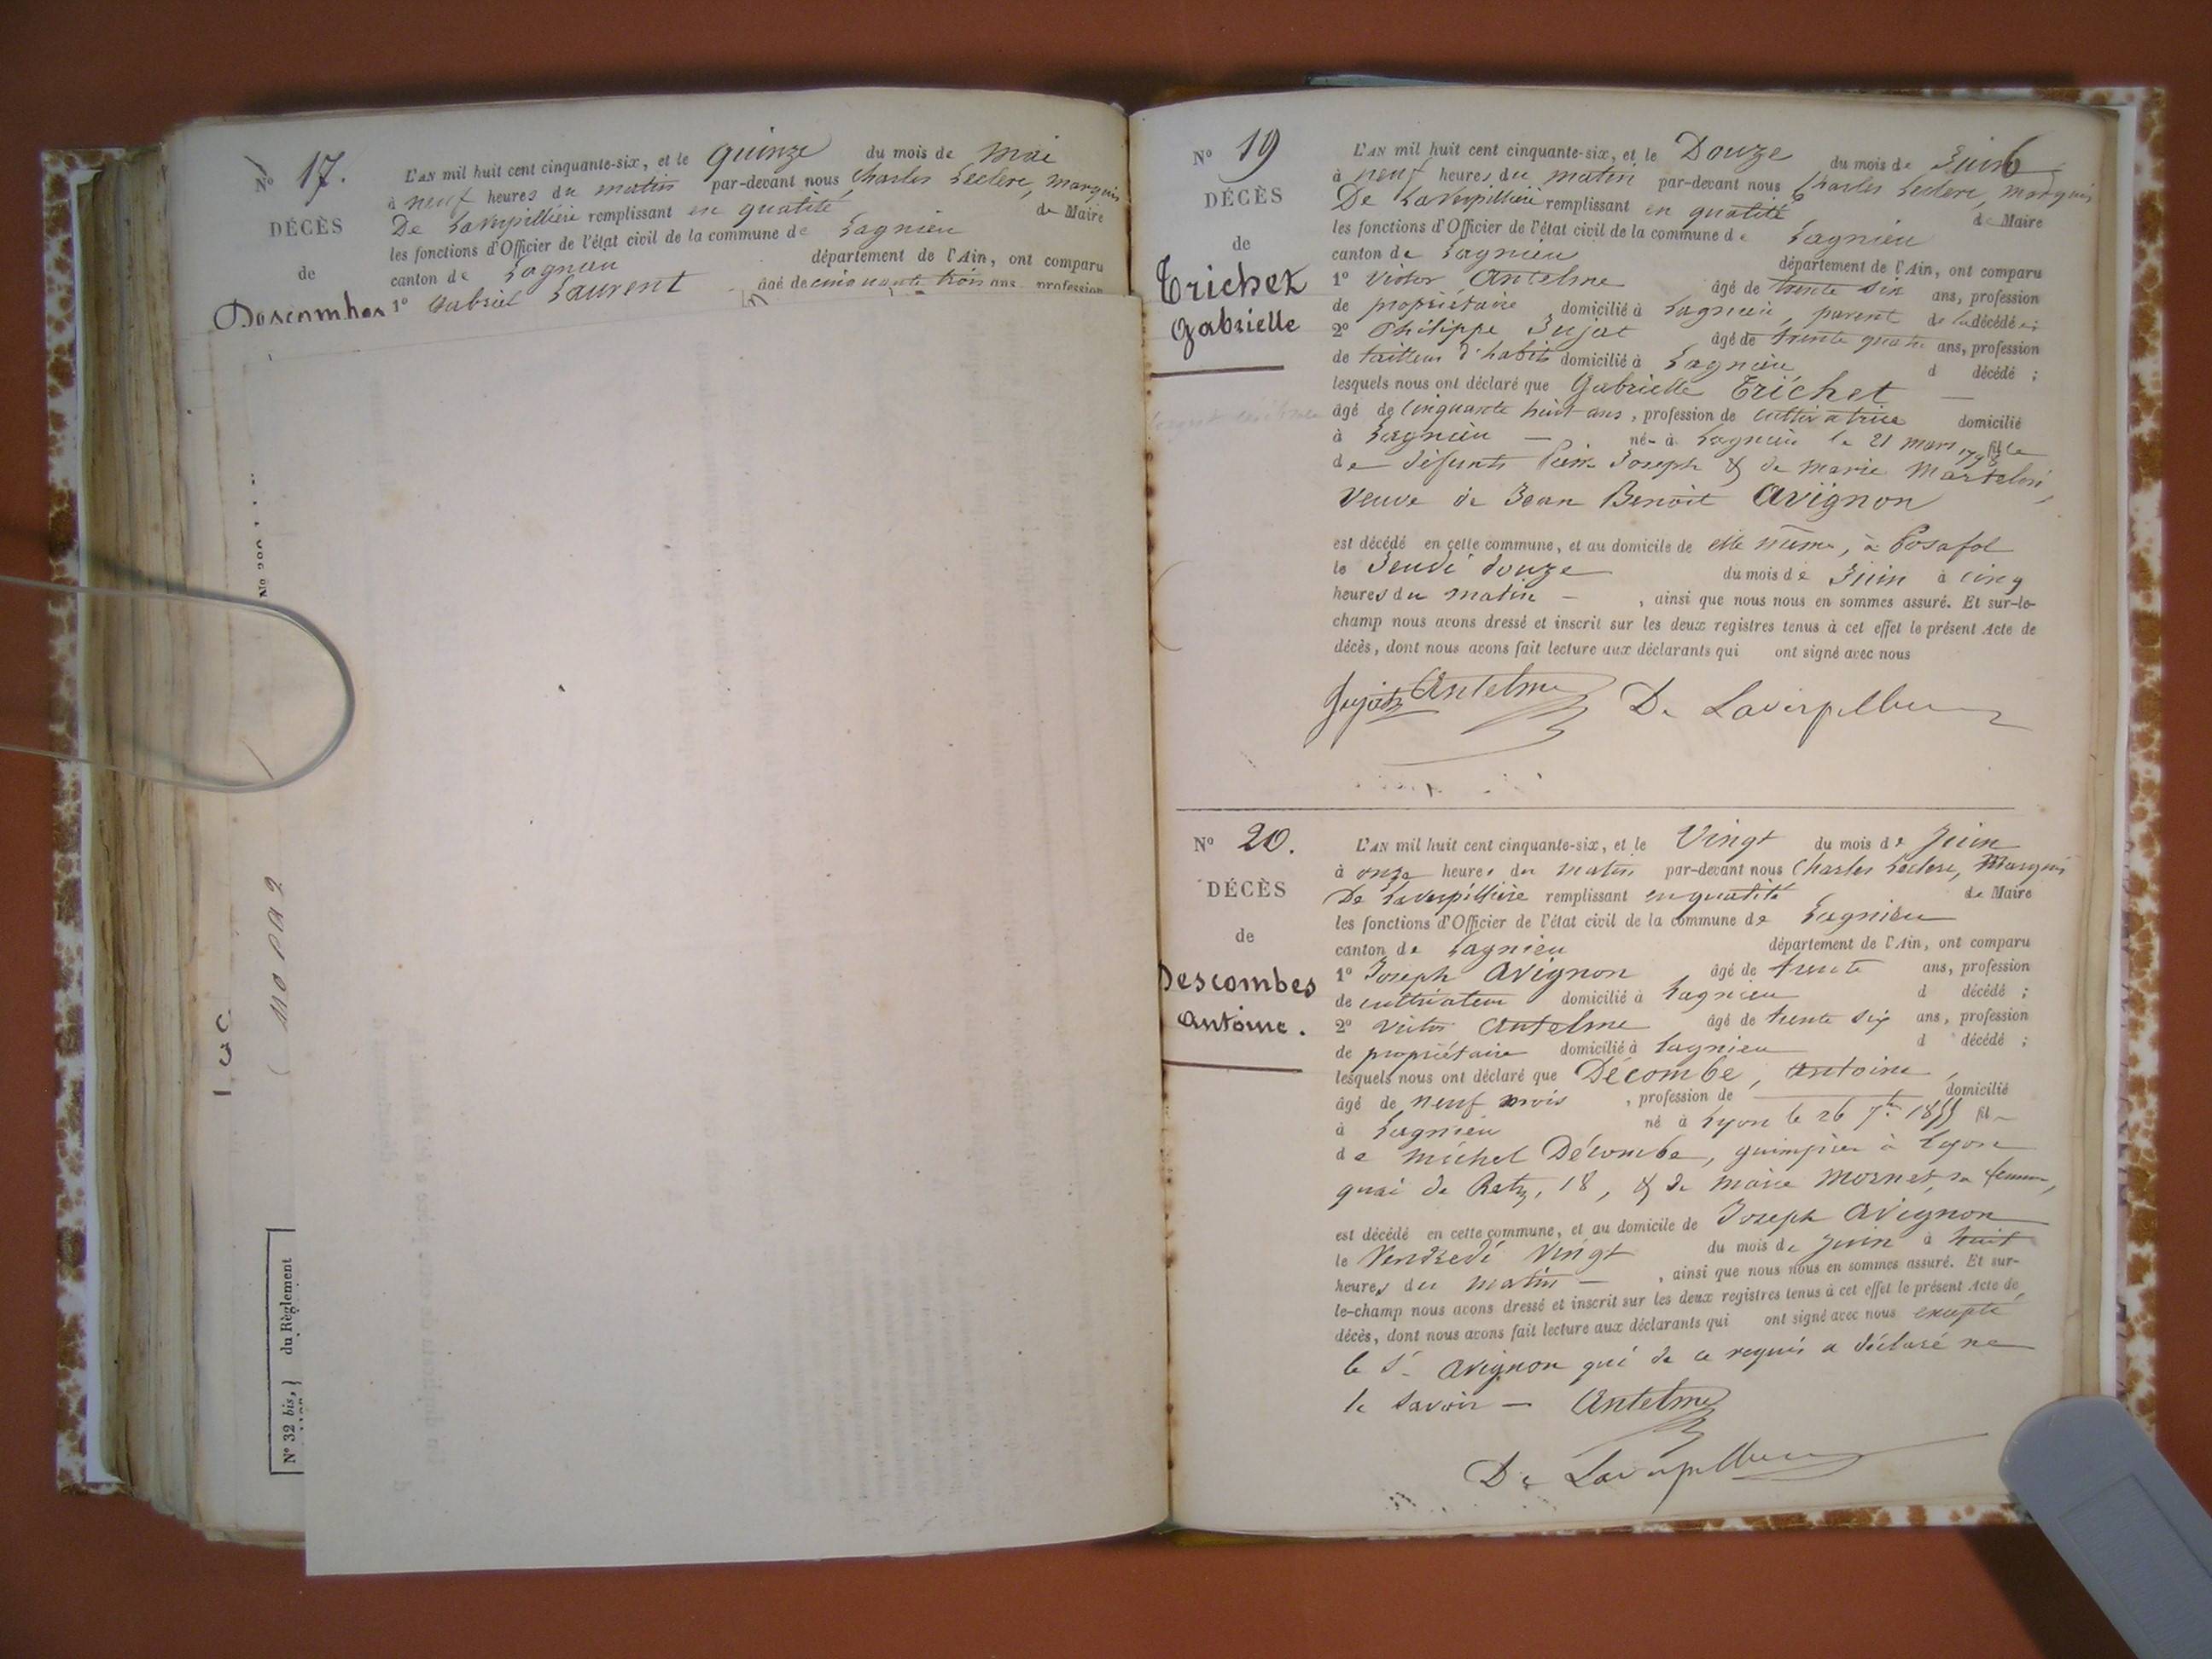 N° 17.
DÉCÈS
de
Descombes
L'AN mil huit cent cinquante-six, et le quinze du mois de Mai
à neuf heures du matin par-devant nous Charles Leclerc, marquis
De Laverpillière remplissant en qualité de Maire
les fonctions d'Officier de l'état civil de la commune de Lagnieu
canton de Lagnieu département de l'Ain, ont comparu
1° Gabriel Laurent âgé de cinquante trois ans, profession
N° 32 bis, du Règlement
N° 19
DÉCÈS
de
Trichet
Gabrielle
L'AN mil huit cent cinquante-six, et le Douze du mois de Juin
à neuf heures du matin par-devant nous Charles Leclerc, marquis
De Laverpillière remplissant en qualité de Maire
les fonctions d'Officier de l'état civil de la commune de Lagnieu
canton de Lagnieu département de l'Ain, ont comparu
1° Victor Antelme âgé de trente six ans, profession
de propriétaire domicilié à Lagnieu, parent de la décédée;
2° Philippe Jujat âgé de trente quatre ans, profession
de tailleur d'habits domicilié à Lagnieu d décédé ;
lesquels nous ont déclaré que Gabrielle Trichet —
âgé de Cinquante huit ans, profession de cultivatrice domicilié
à Lagnieu — né à Lagnieu le 21 mars 1798 fille
de défunts Pierre Joseph & de Marie Martelin,
Veuve de Jean Benoit Avignon
est décédé en cette commune, et au domicile de elle même, à Posafol
le Jeudi douze du mois de Juin à cinq
heures du matin — , ainsi que nous nous en sommes assuré. Et sur-le-
champ nous avons dressé et inscrit sur les deux registres tenus à cet effet le présent Acte de
décès, dont nous avons fait lecture aux déclarants qui ont signé avec nous
Jujat Antelme De Laverpilliere
N° 20.
DÉCÈS
de
Descombes
Antoine.
L'AN mil huit cent cinquante-six, et le Vingt du mois de Juin
à onze heures du matin par-devant nous Charles Leclerc, Marquis
De Laverpillière remplissant en qualité de Maire
les fonctions d'Officier de l'état civil de la commune de Lagnieu
canton de Lagnieu département de l'Ain, ont comparu
1° Joseph Avignon âgé de trente ans, profession
de cultivateur domicilié à Lagnieu d décédé ;
2° Victor Antelme âgé de trente six ans, profession
de propriétaire domicilié à Lagnieu d décédé ;
lesquels nous ont déclaré que Décombe, Antoine,
âgé de neuf mois , profession de — domicilié
à Lagnieu né à Lyon le 26 7bre 1855 fil
de Michel Décombe, guimpier à Lyon
quai de Retz, 18, & de Marie Mornet, sa femme,
est décédé en cette commune, et au domicile de Joseph Avignon
le Vendredi Vingt du mois de Juin à huit
heures du matin — , ainsi que nous nous en sommes assuré. Et sur-
le-champ nous avons dressé et inscrit sur les deux registres tenus à cet effet le présent Acte de
décès, dont nous avons fait lecture aux déclarants qui ont signé avec nous excepté
le Sr. Avignon qui de ce requis a déclaré ne
le savoir — Antelme
De Laverpilliere